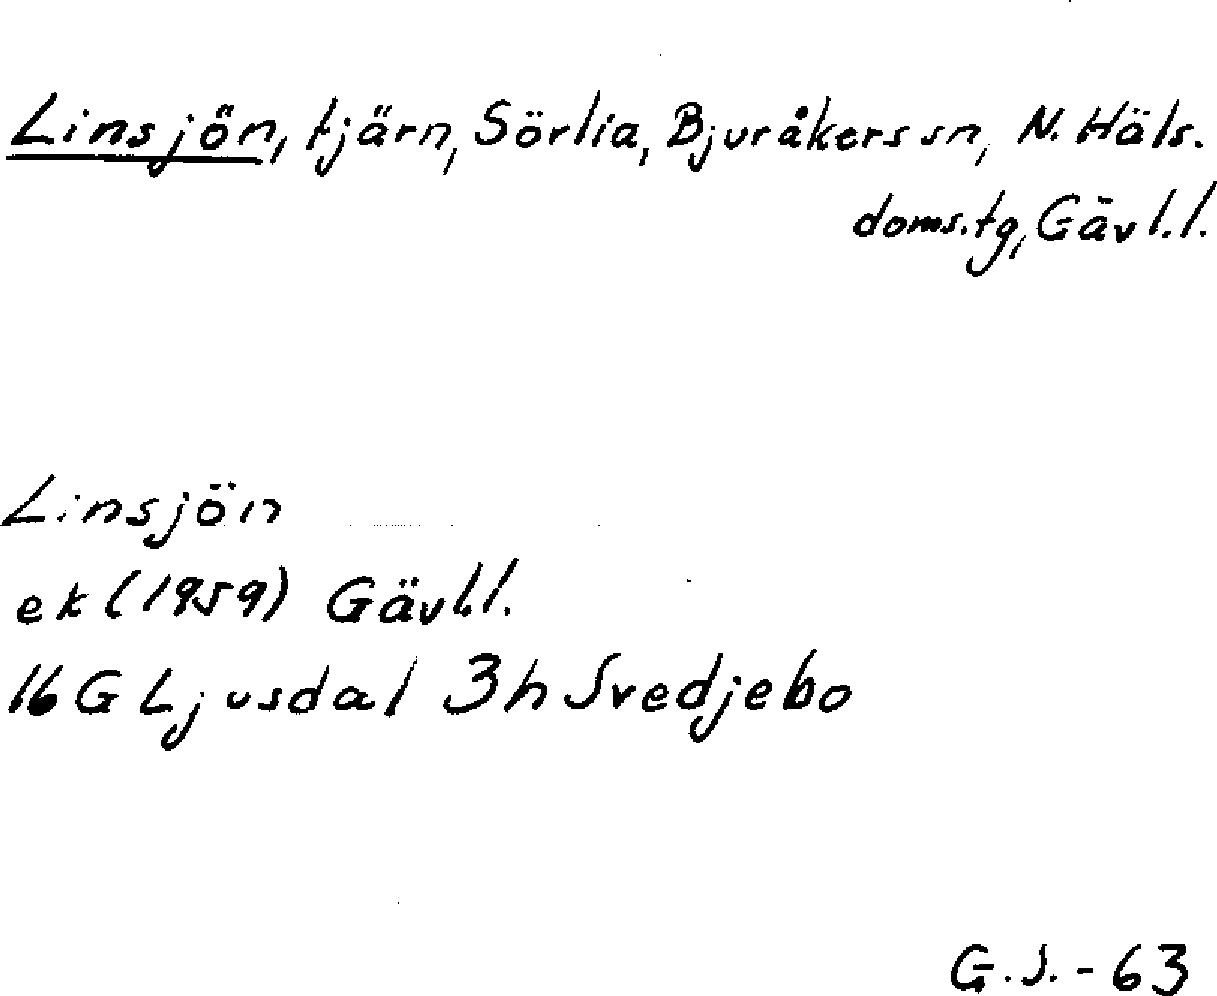 Linsjön, tjärn, Sörlia, Bjuråkers sn, N. Häls.
doms.tg, Gävl.l.
Linsjön
ek (1959) Gävl.l.
16G Ljusdal 3h Svedjebo
G.J.-63